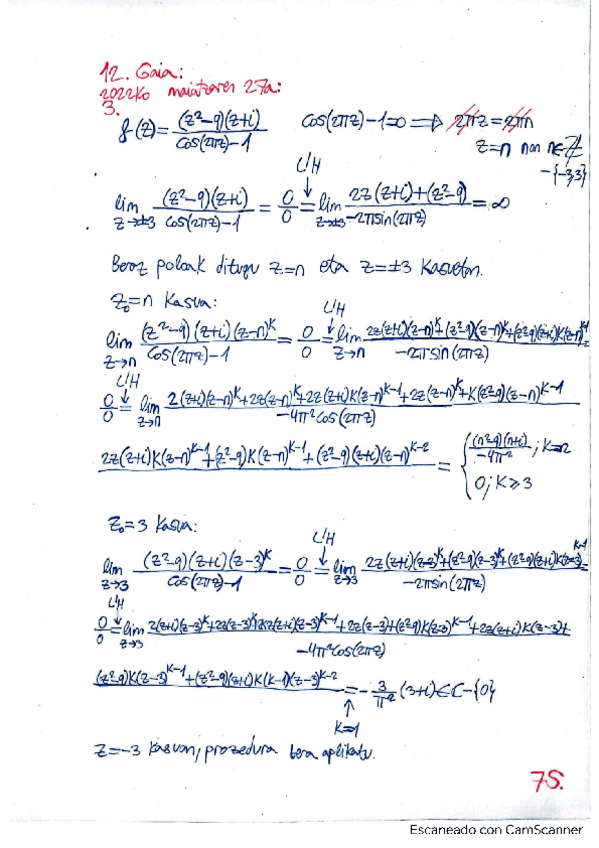 12. Gaia:
2022ko maiatzaren 27a:
3.
f(z)=(z²-9)(z+i)/(cos(2πz)-1) cos(2πz)-1=0 ⟹ 2πz=2πn
z=n non n∈ℤ
-{-3,3}
lim z→±3 (z²-9)(z+i)/(cos(2πz)-1) = 0/0 = L'H lim z→±3 (2z(z+i)+(z²-9))/(-2πsin(2πz)) = ∞
Beraz poloak ditugu z=n eta z=±3 kasuetan.
z₀=n kasua:
lim z→n (z²-9)(z+i)(z-n)^k/(cos(2πz)-1) = 0/0 = L'H lim z→n (2z(z+i)(z-n)^k+(z²-9)(z-n)^k+(z²-9)(z+i)k(z-n)^k-1)/(-2πsin(2πz)) =
0/0 = L'H lim z→n (2(z+i)(z-n)^k+2z(z-n)^k+2z(z+i)k(z-n)^k-1+2z(z-n)^k+k(z²-9)(z-n)^k-1)/(-4π²cos(2πz))
2z(z+i)k(z-n)^k-1+(z²-9)k(z-n)^k-1+(z²-9)(z+i)(z-n)^k-2 = { (n²-9)(n+i)/(-4π²) ; k=2
0; k≥3
z₀=3 kasua:
lim z→3 (z²-9)(z+i)(z-3)^k/(cos(2πz)-1) = 0/0 = L'H lim z→3 (2z(z+i)(z-3)^k+(z²-9)(z-3)^k+(z²-9)(z+i)k(z-3)^k-1)/(-2πsin(2πz)) =
0/0 = L'H lim z→3 (2(z+i)(z-3)^k+2z(z-3)^k+2z(z+i)(z-3)^k-1+2z(z-3)+(z²-9)k(z-3)^k-1+2z(z+i)k(z-3)+)/(-4π²cos(2πz))
(z²-9)k(z-3)^k-1+(z²-9)(z+i)k(k-1)(z-3)^k-2 = -3/π² (3+i)∈C-{0}
↑
k=1
z=-3 kasuan, prozedura bera aplikatu.
75.
Escaneado con CamScanner